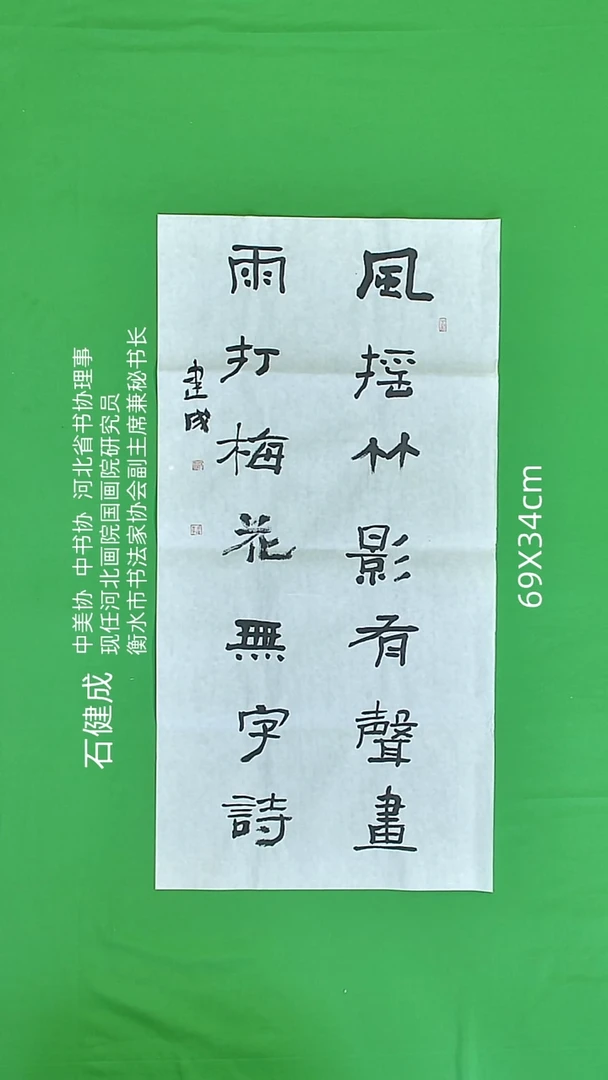 風摇竹影有聲畫
雨打梅花無字詩
建成
石健成
中美协 中书协 河北省书协理事
现任河北画院国画院研究员
衡水市书法家协会副主席兼秘书长
69X34cm